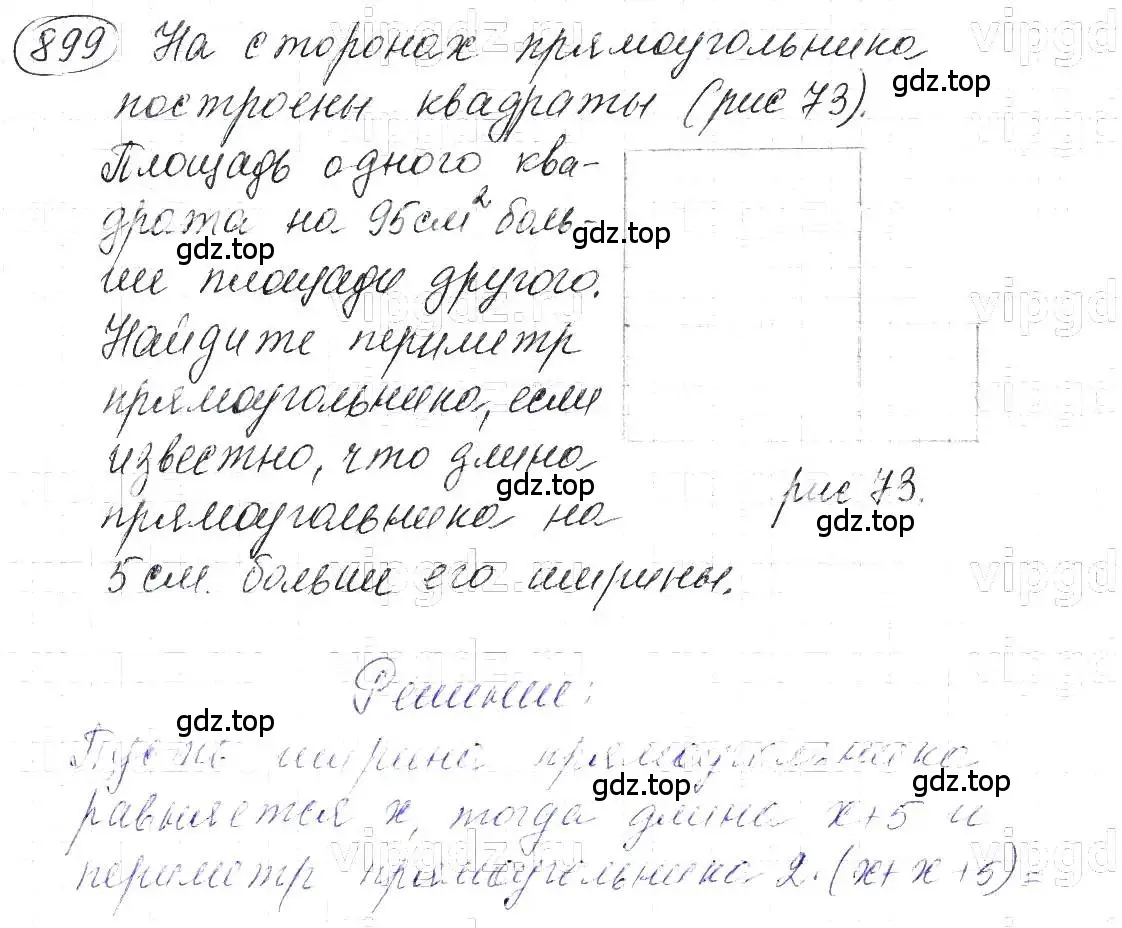 899 На сторонах прямоугольника
построены квадраты (рис 73).
Площадь одного ква-
драта на 95 см² боль-
ше площади другого.
Найдите периметр
прямоугольника, если
известно, что длина
прямоугольника на
5 см. больше его ширины.
рис 73.
Решение:
Пусть ширина прямоугольника
равняется x, тогда длина x+5 и
периметр прямоугольника 2·(x+x+5)=
gdz.top
gdz.top
gdz.top
gdz.top
gdz.top
gdz.top
gdz.top
gdz.top
vipgdz.ru
vipgd